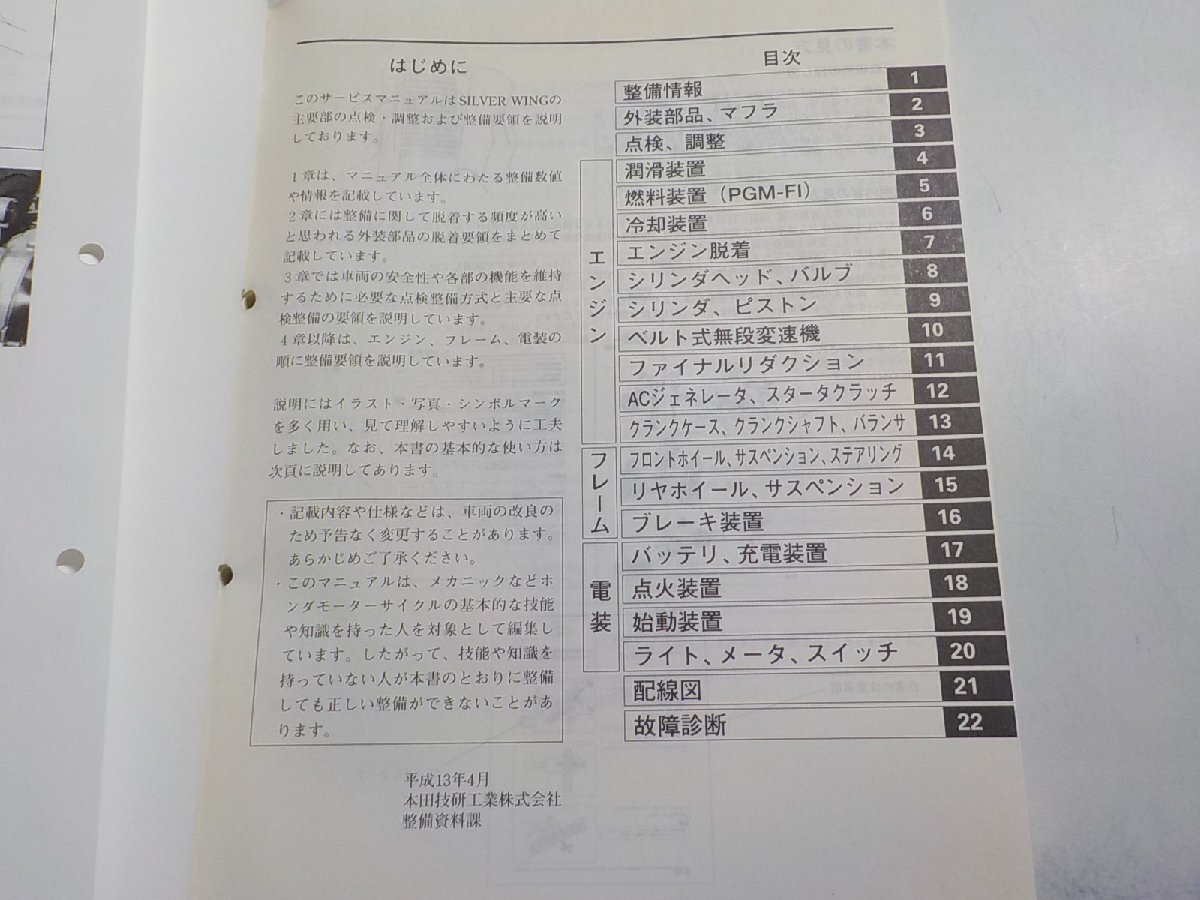 はじめに
このサービスマニュアルはSILVER WINGの
主要部の点検・調整および整備要領を説明
しております。
1章は、マニュアル全体にわたる整備数値
や情報を記載しています。
2章には整備に関して脱着する頻度が高い
と思われる外装部品の脱着要領をまとめて
記載しています。
3章では車両の安全性や各部の機能を維持
するために必要な点検整備方式と主要な点
検整備の要領を説明しています。
4章以降は、エンジン、フレーム、電装の
順に整備要領を説明しています。
説明にはイラスト・写真・シンボルマーク
を多く用い、見て理解しやすいように工夫
しました。なお、本書の基本的な使い方は
次頁に説明してあります。
・記載内容や仕様などは、車両の改良の
ため予告なく変更することがあります。
あらかじめご了承ください。
・このマニュアルは、メカニックなどホ
ンダモーターサイクルの基本的な技能
や知識を持った人を対象として編集し
ています。したがって、技能や知識を
持っていない人が本書のとおりに整備
しても正しい整備ができないことがあ
ります。
平成13年4月
本田技研工業株式会社
整備資料課
目次
整備情報 1
外装部品、マフラ 2
点検、調整 3
エンジン
潤滑装置 4
燃料装置（PGM-FI） 5
冷却装置 6
エンジン脱着 7
シリンダヘッド、バルブ 8
シリンダ、ピストン 9
ベルト式無段変速機 10
ファイナルリダクション 11
ACジェネレータ、スタータクラッチ 12
クランクケース、クランクシャフト、バランサ 13
フレーム
フロントホイール、サスペンション、ステアリング 14
リヤホイール、サスペンション 15
ブレーキ装置 16
電装
バッテリ、充電装置 17
点火装置 18
始動装置 19
ライト、メータ、スイッチ 20
配線図 21
故障診断 22